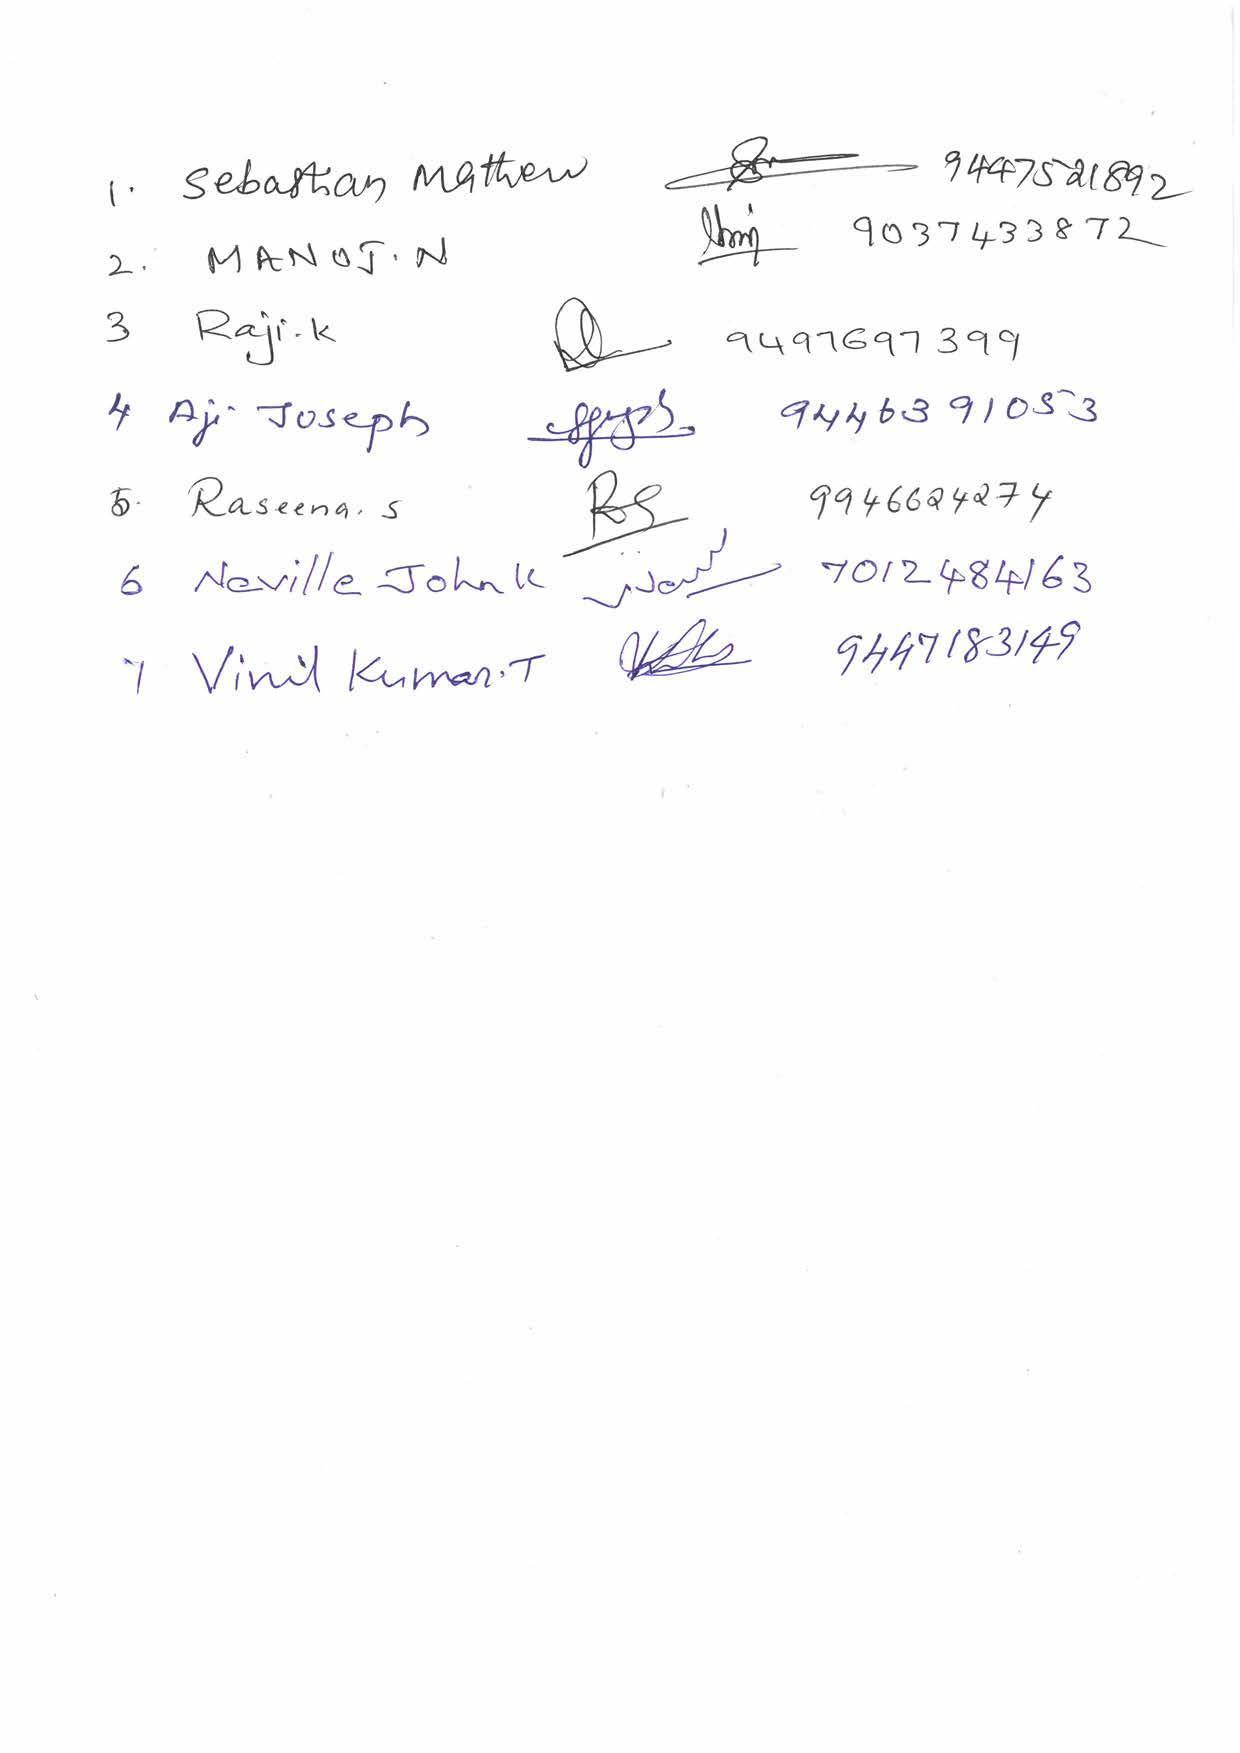 1. Sebastian Mathew 9447521892
2. MANOJ.N 9037433872
3 Raji.K 9497697399
4 Aji Joseph 9446391053
5. Raseena.S RS 9946624274
6 Neville John K 7012484163
7 Vinil Kumar.T 9447183149